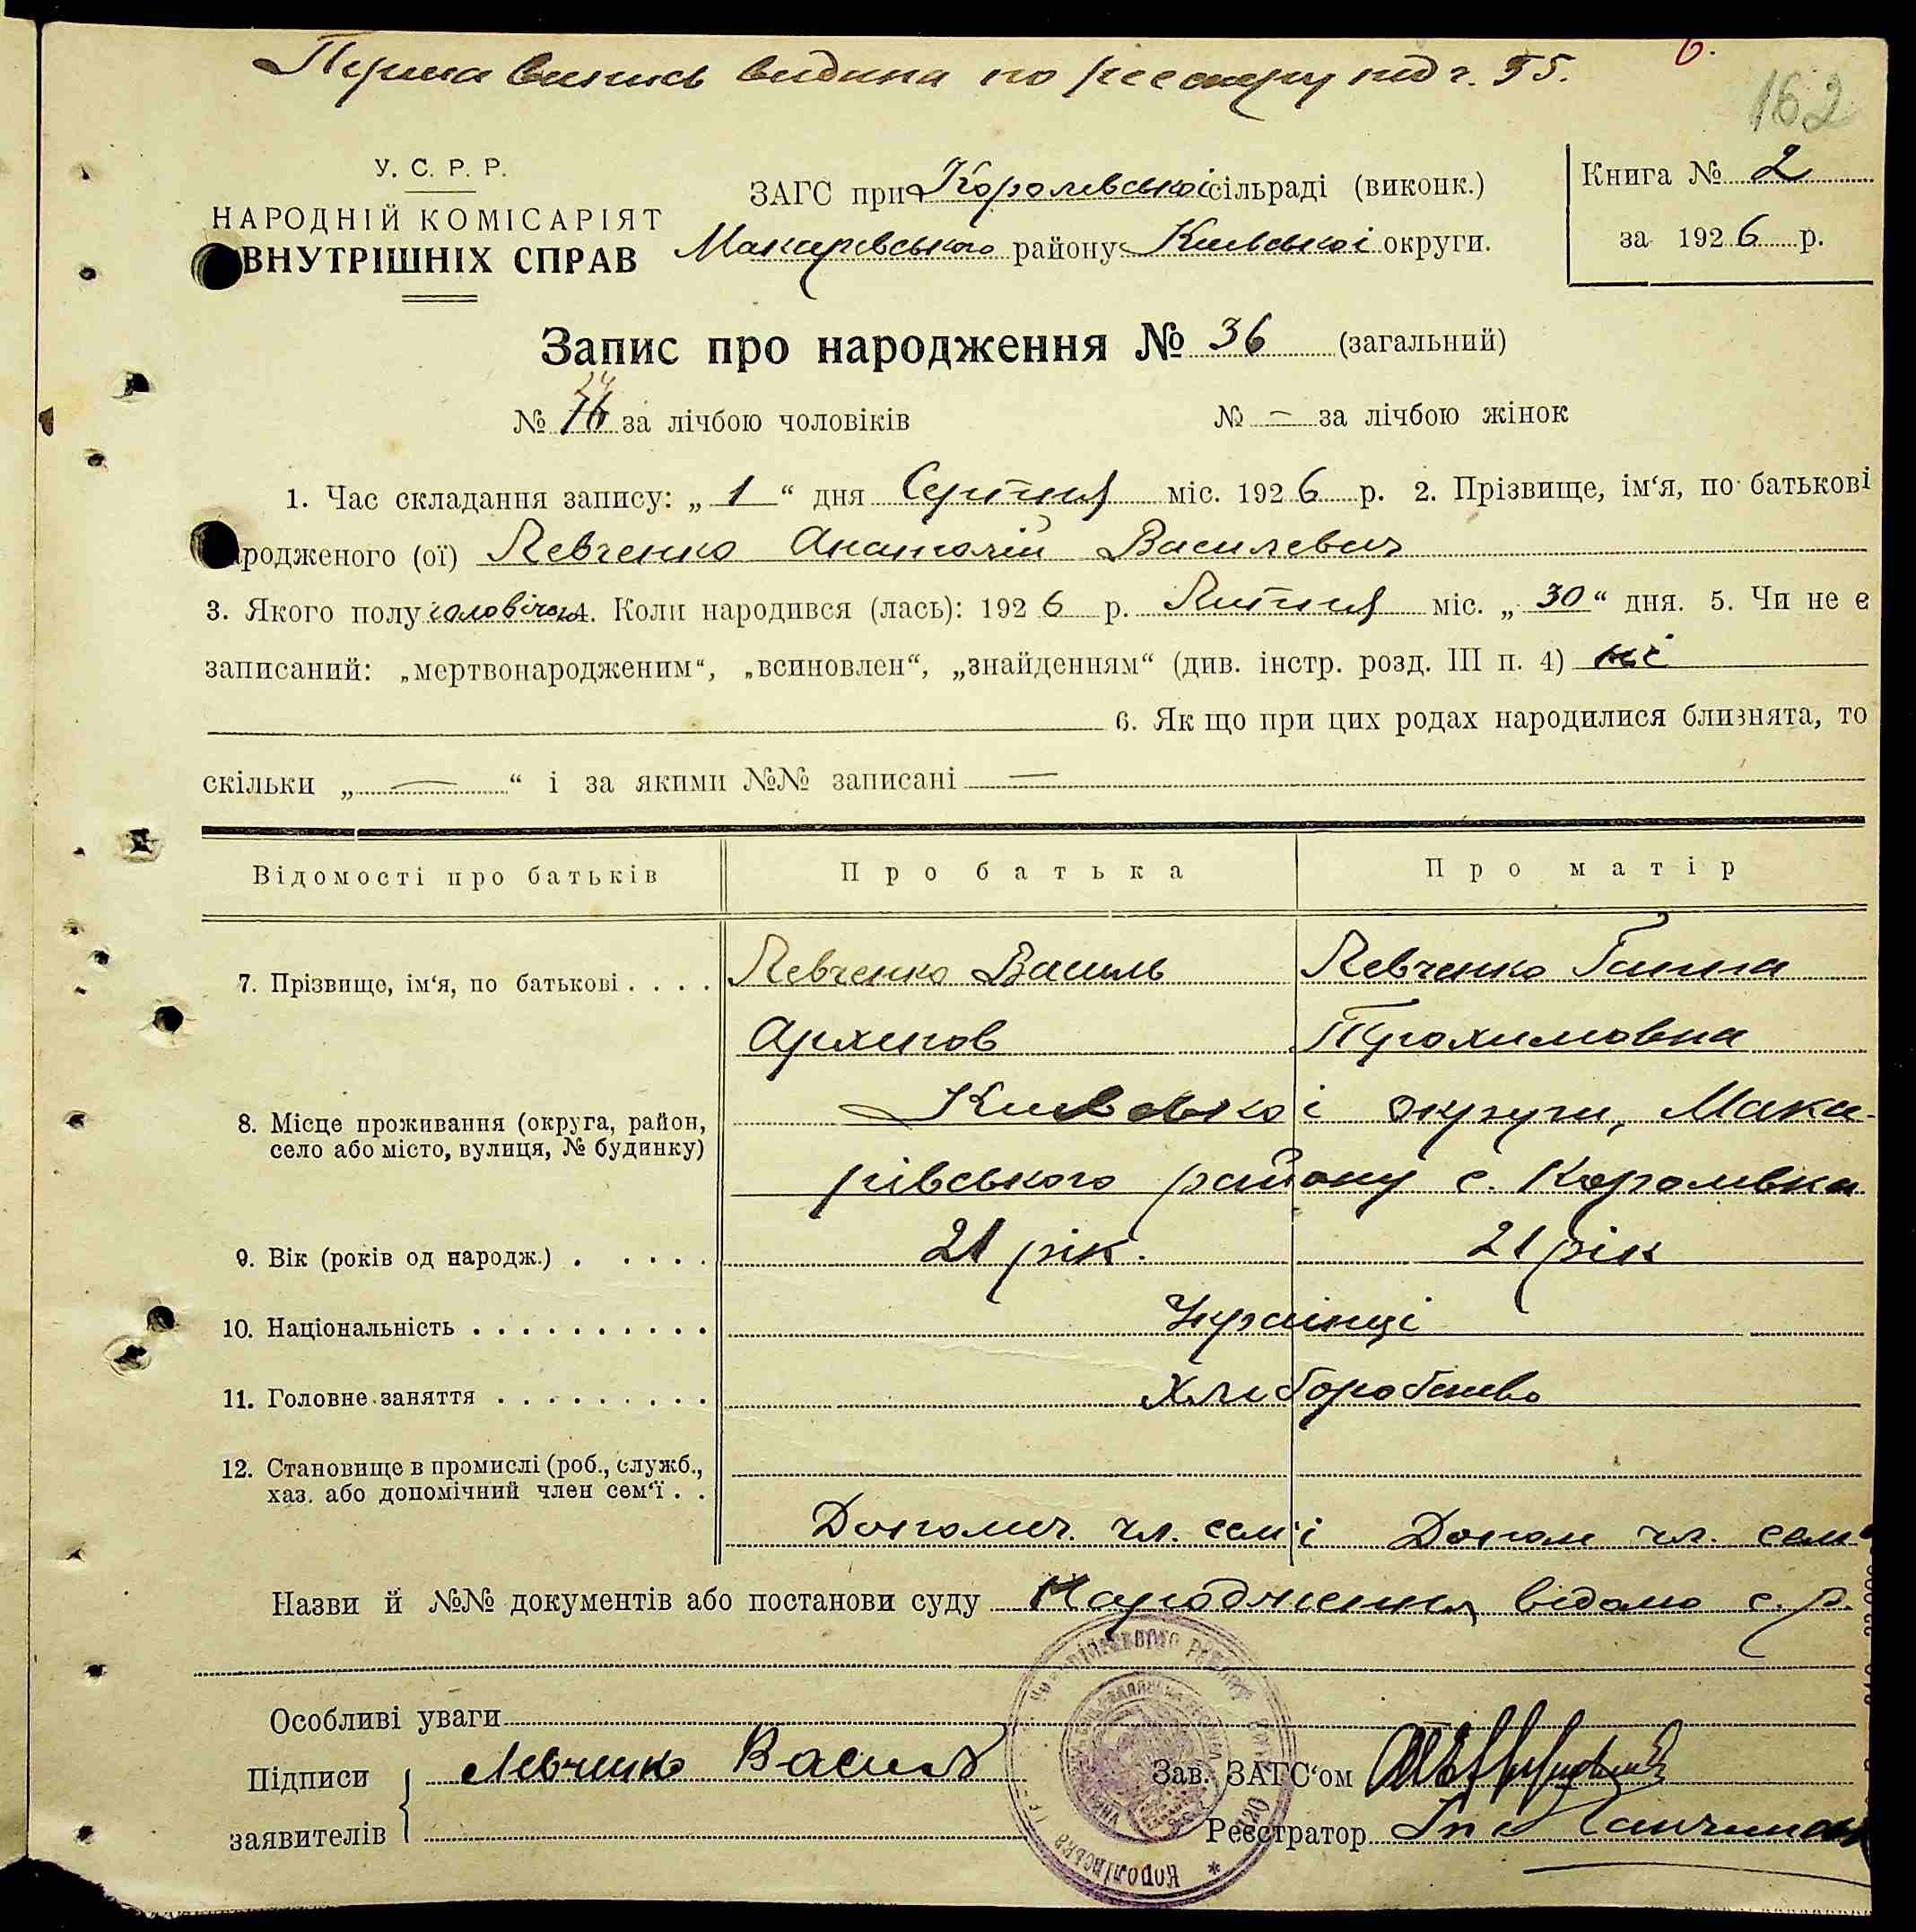 Перша випись видана по реєстру під ч. 55.
6.
162
У. С. Р. Р.
НАРОДНІЙ КОМІСАРІЯТ
ВНУТРІШНІХ СПРАВ
ЗАГС при Королевської сільраді (виконк.)
Макарівського району Київської округи.
Книга № 2
за 1926 р.
Запис про народження № 36 (загальний)
24
№ 16 за лічбою чоловіків № — за лічбою жінок
1. Час складання запису: „ 1 “ дня Серпня міс. 1926 р. 2. Прізвище, ім‘я, по батькові
ародженого (ої) Левченко Анатолій Василевич
3. Якого полу чоловічого 4. Коли народився (лась): 1926 р. Липня міс. „ 30 “ дня. 5. Чи не є
записаний: „мертвонародженим“, „всиновлен“, „знайденням“ (див. інстр. розд. III п. 4) ні
6. Як що при цих родах народилися близнята, то
скільки „ — “ і за якими №№ записані —
Відомості про батьків Про батька Про матір
7. Прізвище, ім‘я, по батькові . . . . Левченко Василь Левченко Ганна
Архипов Трохимовна
8. Місце проживання (округа, район, Київської округи, Мака-
село або місто, вулиця, № будинку) рівського району с. Королівка
9. Вік (років од народж.) . . . . . 21 рік. 21 рік
10. Національність . . . . . . . . . . Українці
11. Головне заняття . . . . . . . . . Хліборобство
12. Становище в промислі (роб., служб.,
хаз. або допомічний член сем‘ї . .
Допомич. чл. сем'і Допом чл. сем
Назви й №№ документів або постанови суду Народження відомо с. р.
Особливі уваги
Підписи Левченко Василь Зав. ЗАГС‘ом
заявителів Реєстратор
КОРОЛІВСЬКА